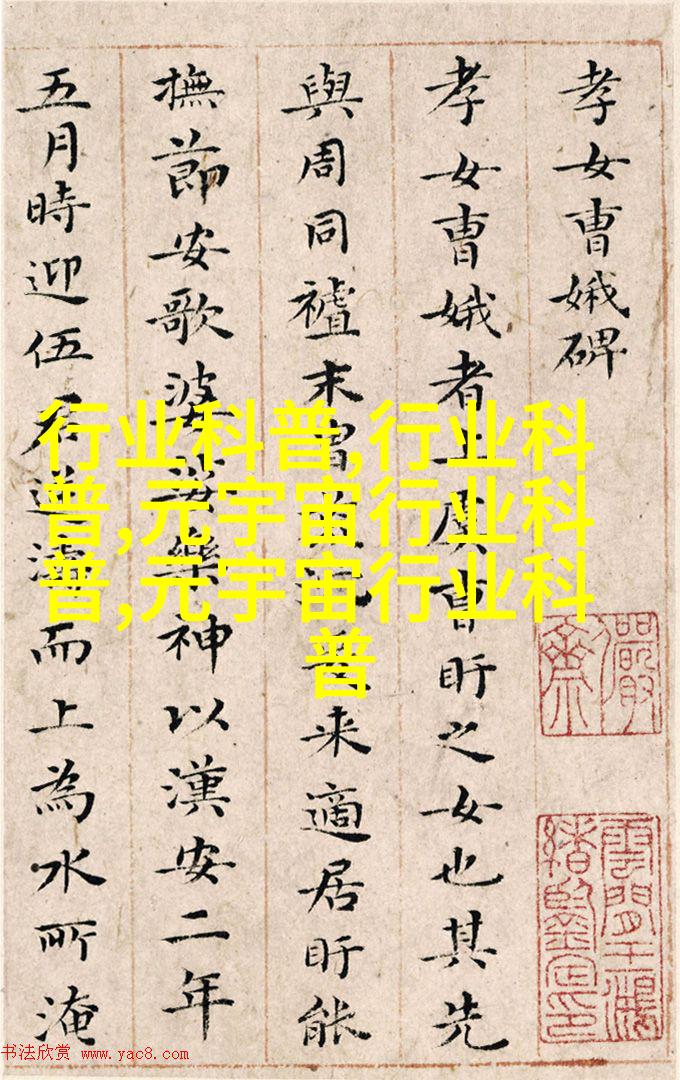 孝女曹娥碑
孝女曹娥者上虞曹盱之女也其先
與周同末胄来適居盱能
撫節安歌婆娑樂神以漢安二年
五月時迎伍君逆濤而上為水所淹
行业科普,行业科
普,元宇宙行业科
普,元宇宙行业科
普
儼齋
雲間王鴻
緒鑒定印
书法欣赏 www.yac8.com